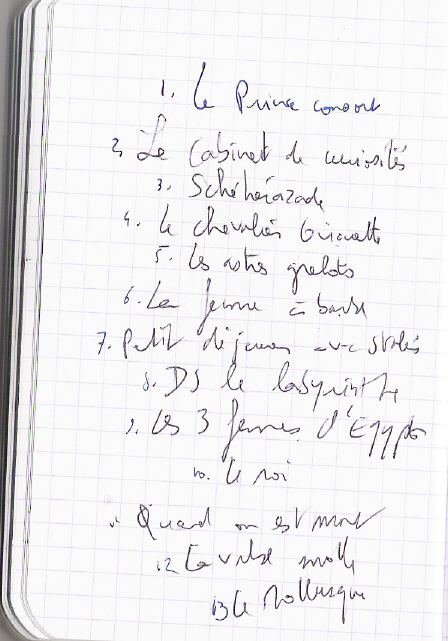 1. Le Prince consort
2. Le Cabinet de curiosités
3. Schéhérazade
4. Le chevalier Girouette
5. Les astres grelots
6. La femme à barbe
7. Petit déjeuner avec
8. Ds le labyrinthe
9. Les 3 femmes d'Egypte
10. Le roi
11. Quand on est mort
12 La valse molle
13 Le Mollusque